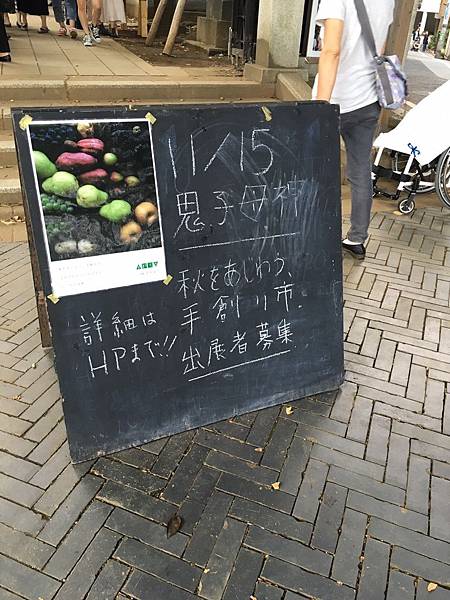 11/15
鬼子母神
秋をあじわう、
手創り市.
出展者募集
詳細は
HPまで!!